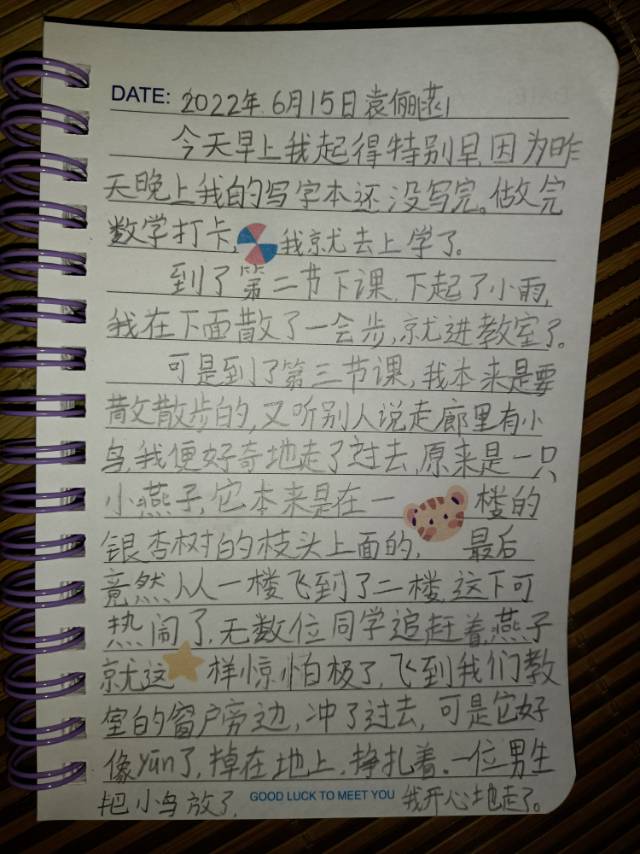 DATE: 2022年6月15日袁俪
今天早上我起得特别早,因为昨
天晚上我的写字本还没写完。做完
数学打卡,我就去上学了。
到了第二节下课,下起了小雨,
我在下面散了一会步,就进教室了。
可是到了第三节课,我本来是要
散散步的,又听别人说走廊里有小
鸟,我便好奇地走了过去,原来是一只
小燕子,它本来是在一楼的
银杏树的枝头上面的,最后
竟然从一楼飞到了二楼,这下可
热闹了,无数位同学追赶着,燕子
就这样惊怕极了,飞到我们教
室的窗户旁边,冲了过去,可是它好
像yūn了,掉在地上,挣扎着。一位男生
把小鸟放了,GOOD LUCK TO MEET YOU 我开心地走了。